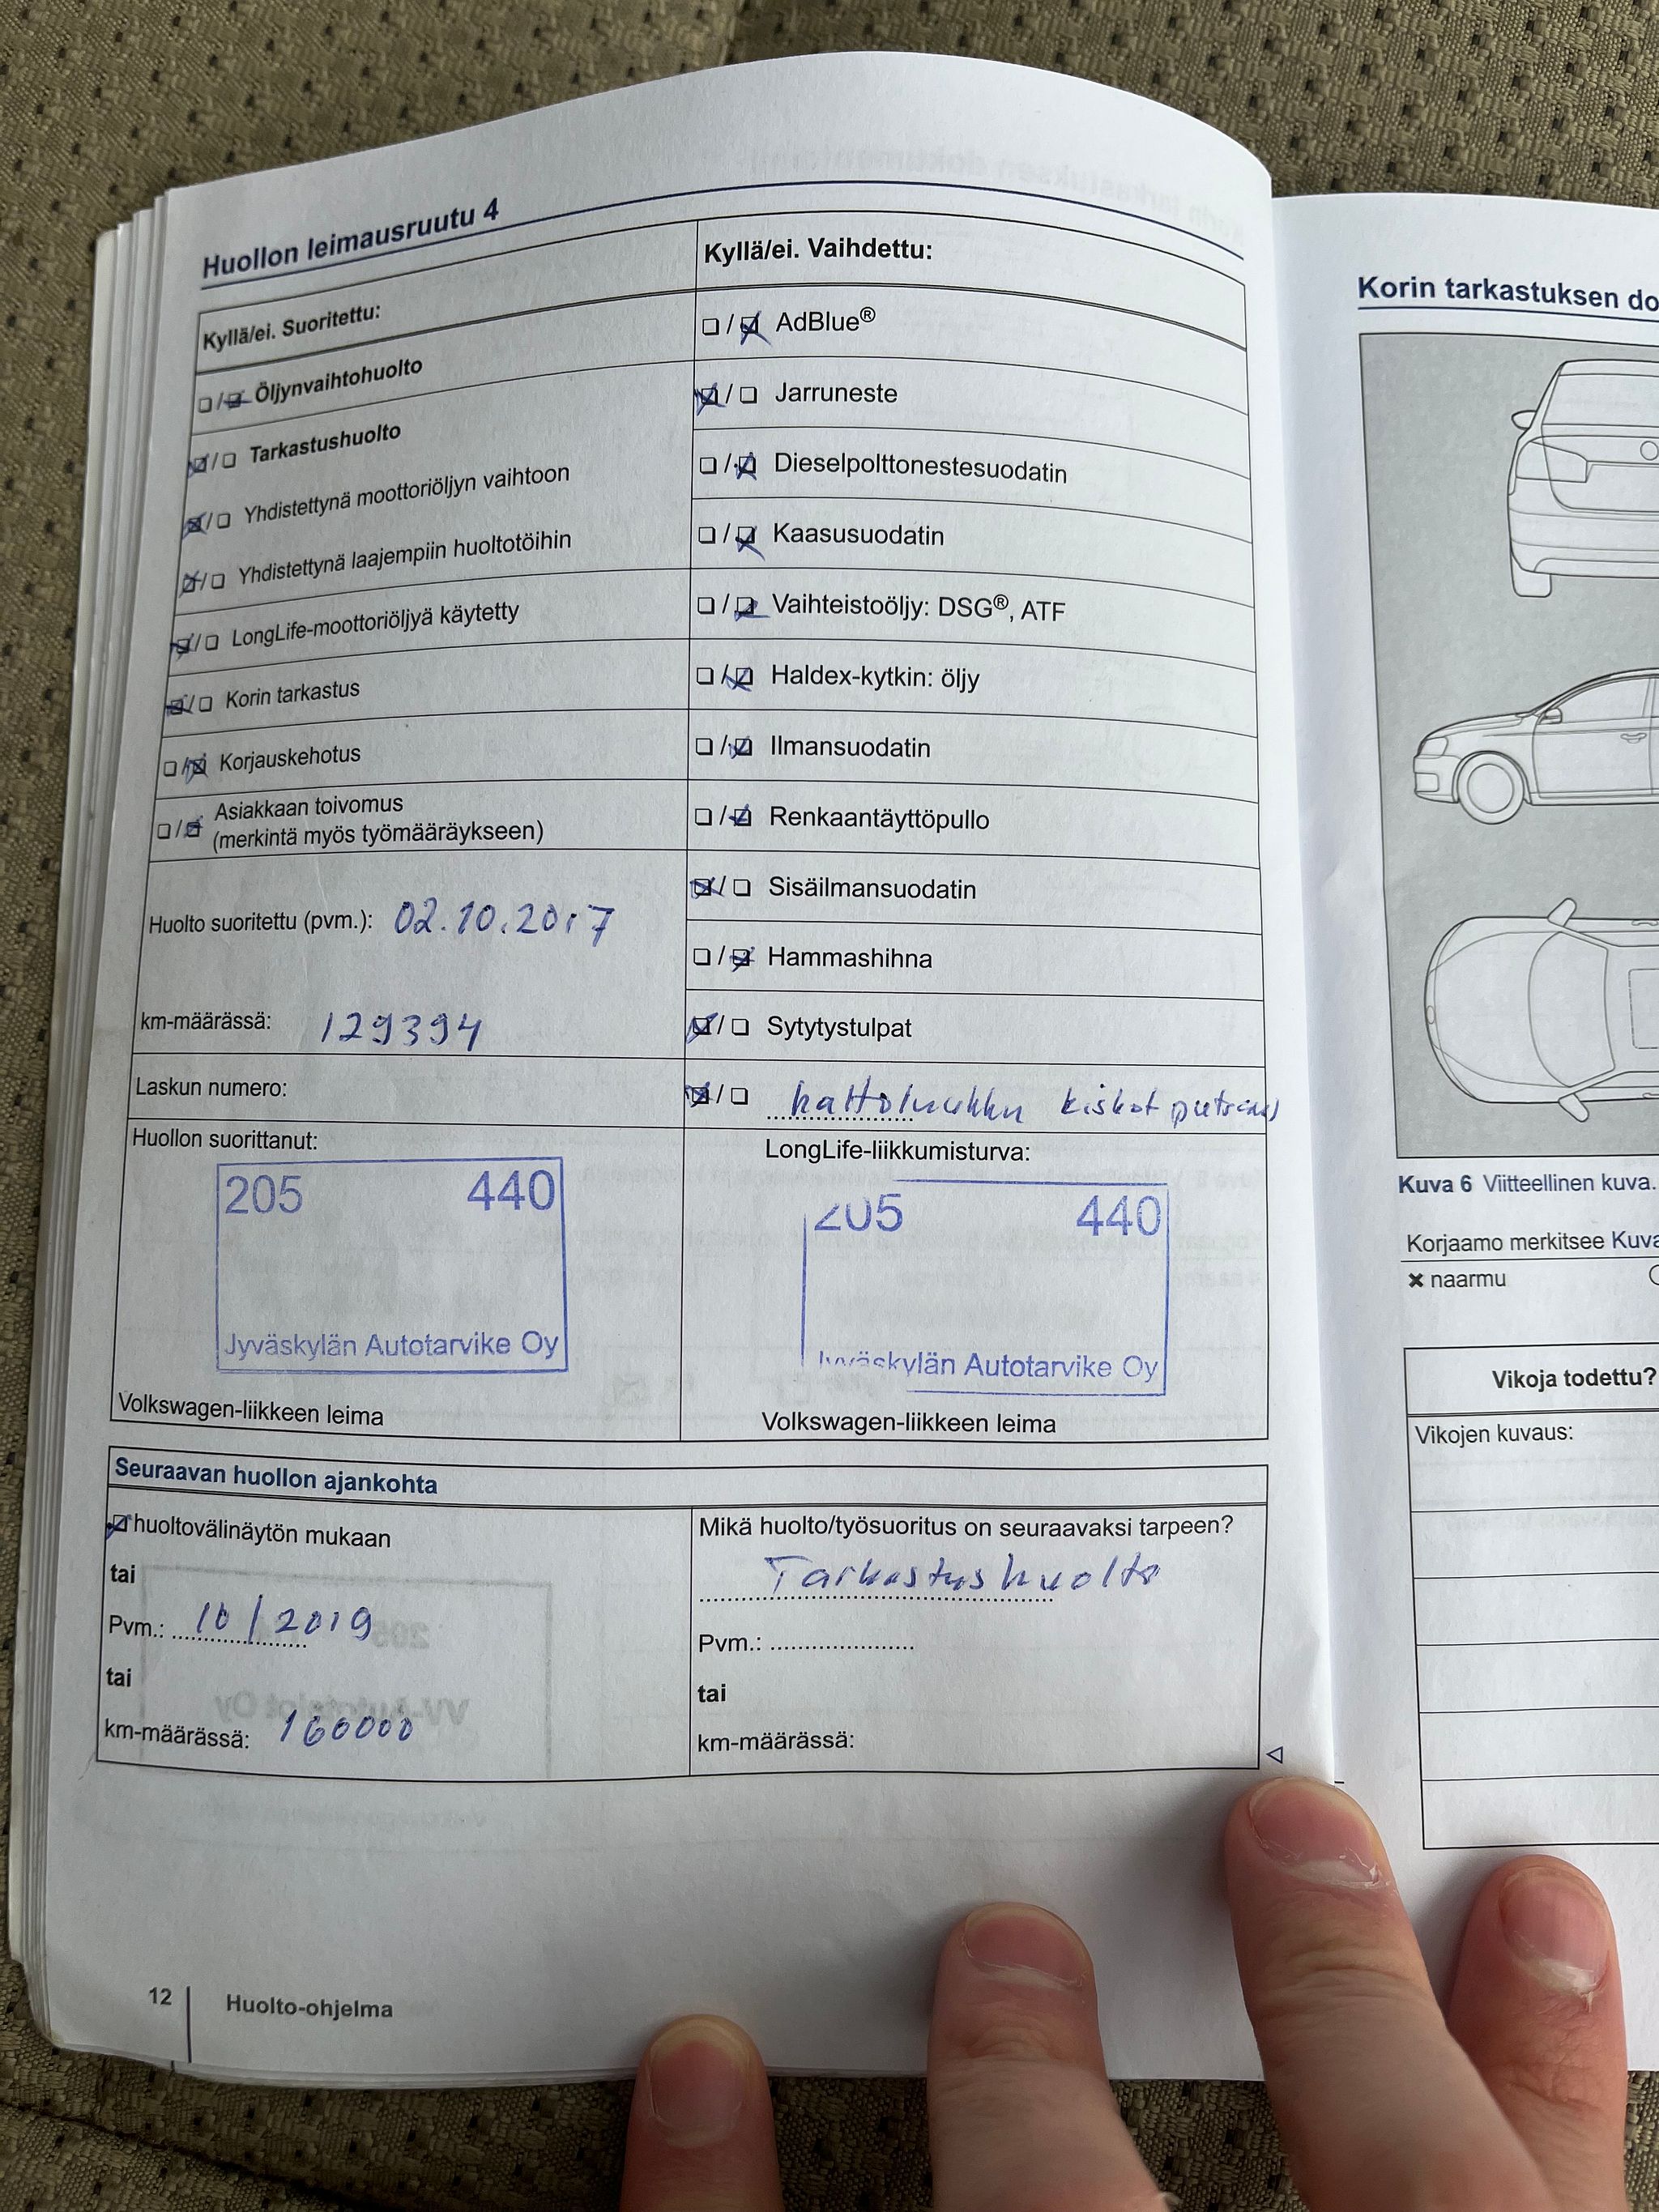 Huollon leimausruutu 4
Kyllä/ei. Suoritettu:
Öljynvaihtohuolto
Tarkastushuolto
Yhdistettynä moottoriöljyn vaihtoon
Yhdistettynä laajempiin huoltotöihin
LongLife-moottoriöljyä käytetty
Korin tarkastus
Korjauskehotus
Asiakkaan toivomus
(merkintä myös työmääräykseen)
Huolto suoritettu (pvm.): 02.10.2017
km-määrässä: 129394
Laskun numero:
Huollon suorittanut:
205 440
Jyväskylän Autotarvike Oy
Volkswagen-liikkeen leima
Kyllä/ei. Vaihdettu:
AdBlue®
Jarruneste
Dieselpolttonestesuodatin
Kaasusuodatin
Vaihteistoöljy: DSG®, ATF
Haldex-kytkin: öljy
Ilmansuodatin
Renkaantäyttöpullo
Sisäilmansuodatin
Hammashihna
Sytytystulpat
kattoluukku kiskot
LongLife-liikkumisturva:
205 440
Jyväskylän Autotarvike Oy
Volkswagen-liikkeen leima
Seuraavan huollon ajankohta
huoltovälinäytön mukaan
tai
Pvm.: 10/2019
tai
km-määrässä: 160000
Mikä huolto/työsuoritus on seuraavaksi tarpeen?
Tarkastushuolto
Pvm.:
tai
km-määrässä:
12 Huolto-ohjelma
Korin tarkastuksen do
Kuva 6 Viitteellinen kuva.
Korjaamo merkitsee Kuva
naarmu
Vikoja todettu?
Vikojen kuvaus: